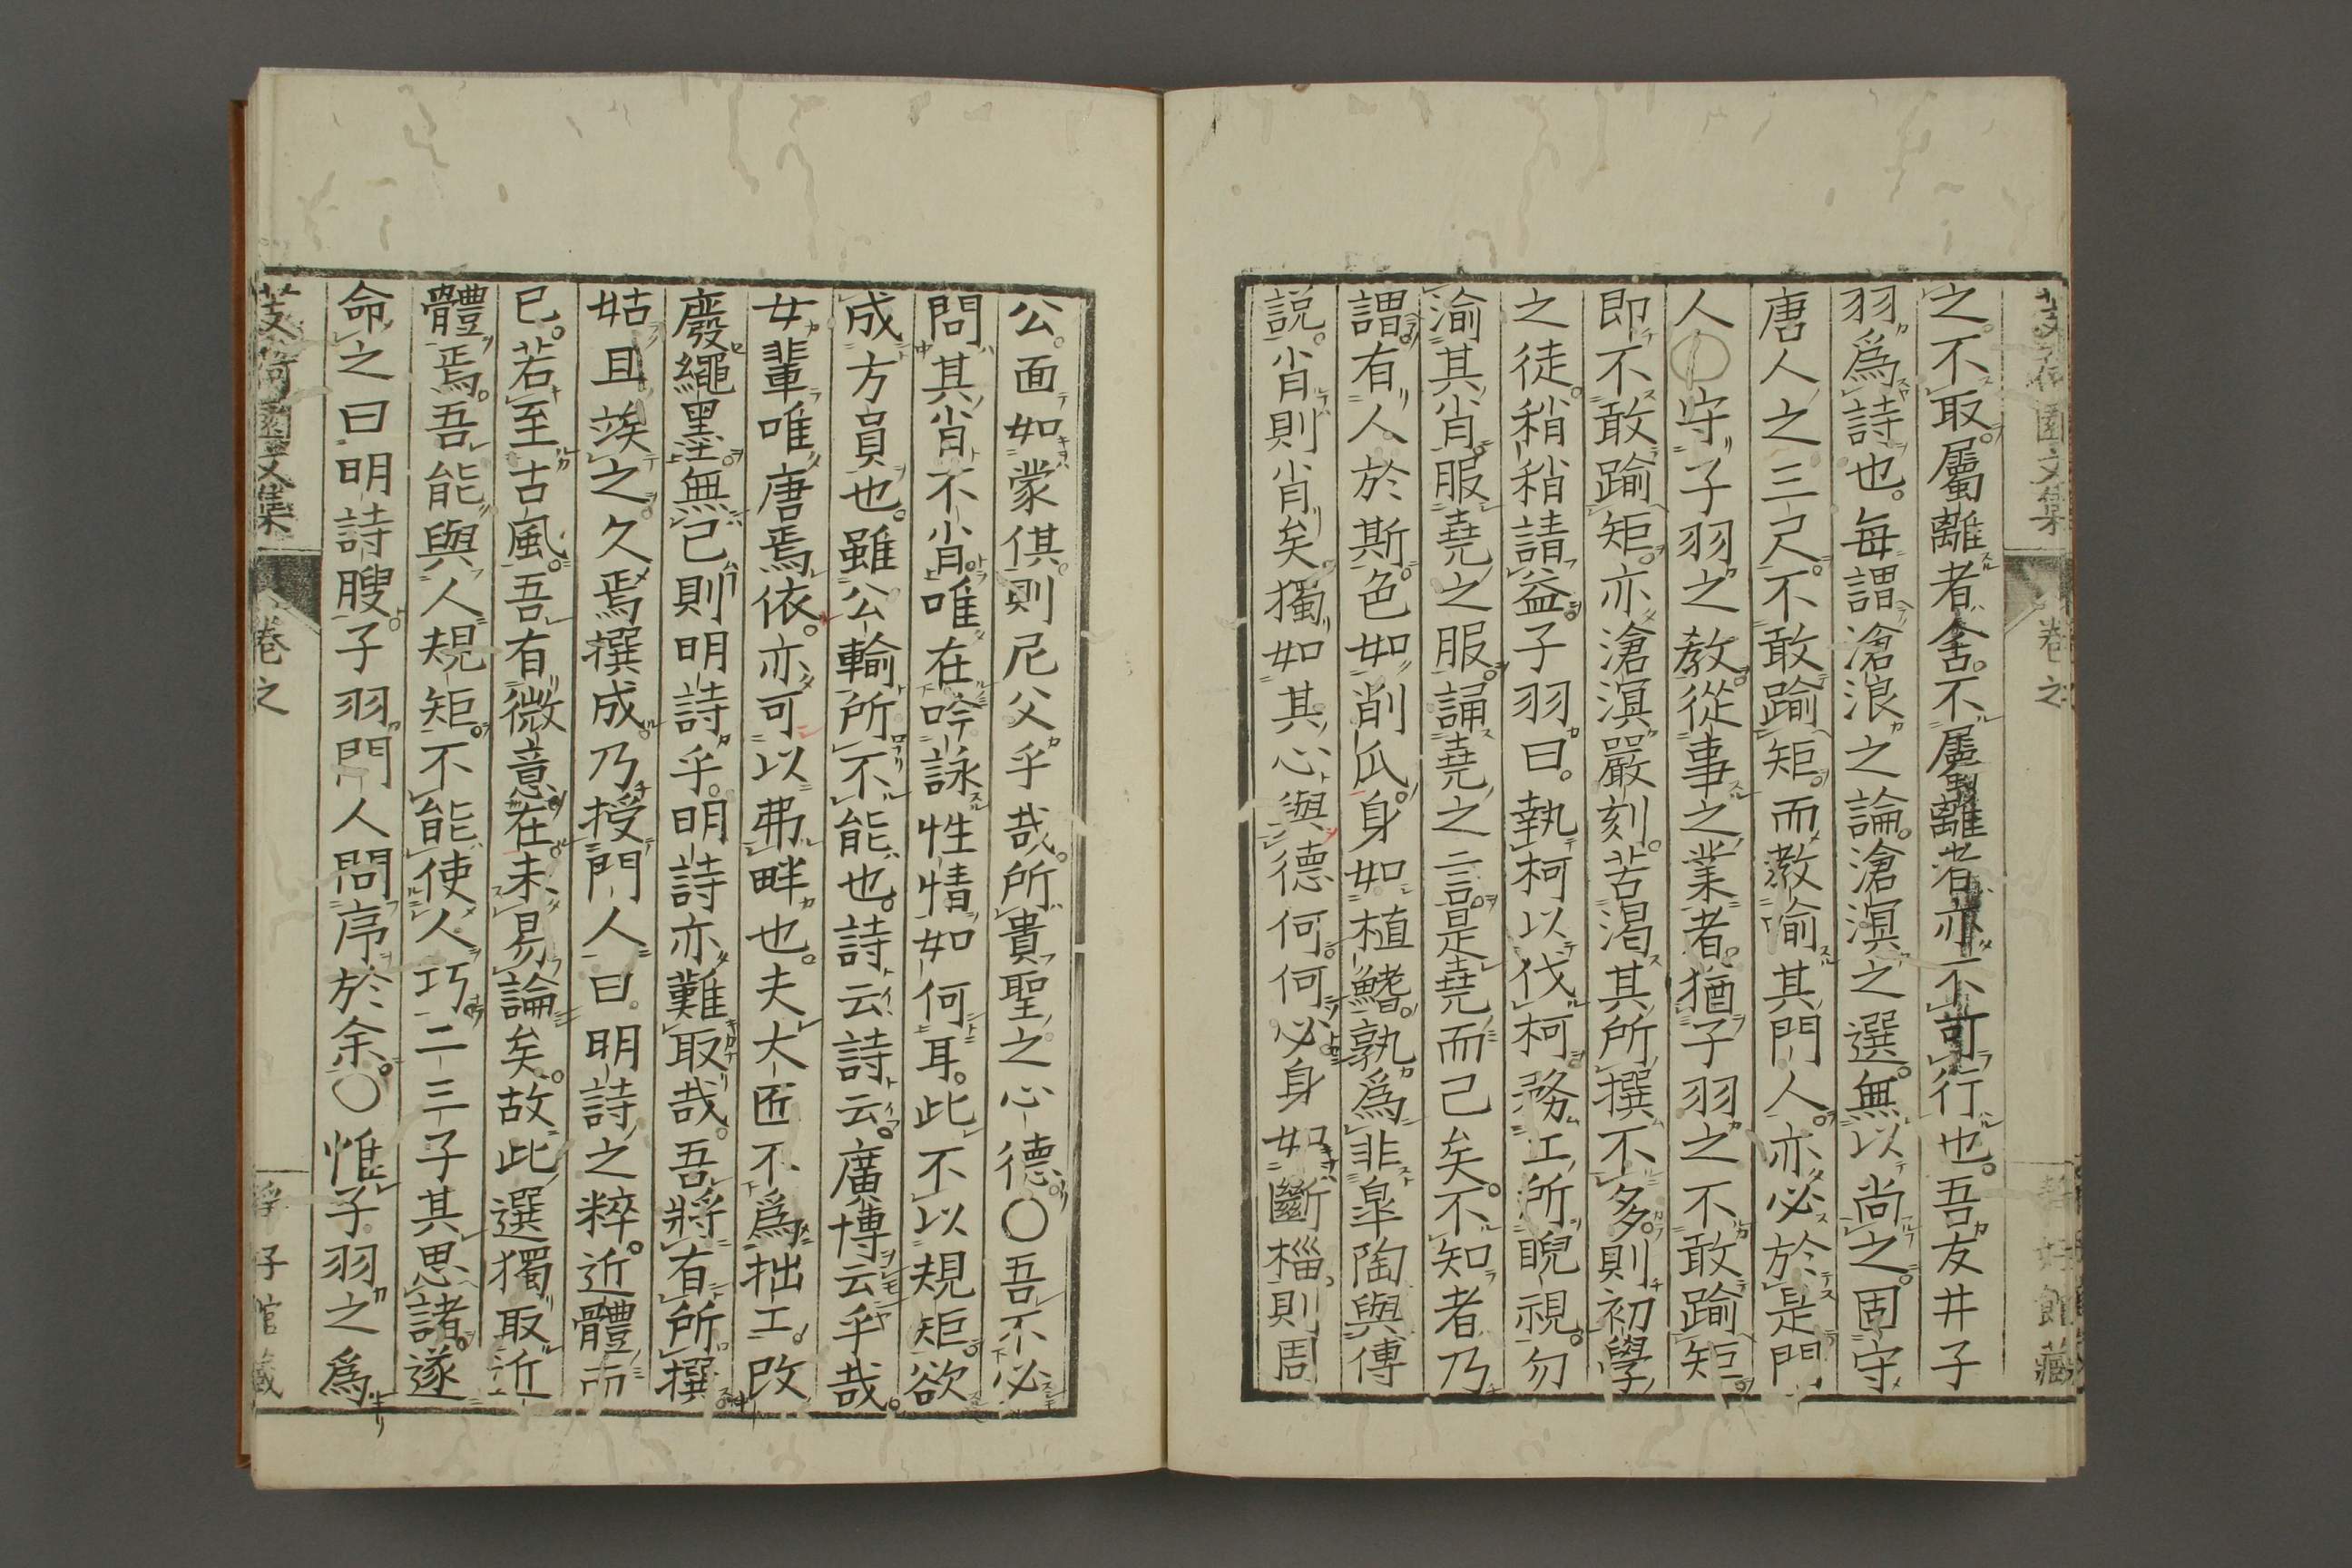 芰荷園文集 卷之 靜好館藏
之不取屬離者舍不屬離者亦不可行也吾友井子
羽爲詩也每謂滄浪之論滄溟之選無以尚之固守
唐人之三尺不敢踰矩而教喻其門人亦必於是門
人○守子羽之教從事之業者猶子羽之不敢踰矩
即不敢踰矩亦滄溟嚴刻苦渴其所撰不多則初學
之徒稍稍請益子羽曰執柯以伐柯務工所睨視勿
渝其肖服堯之服誦堯之言是堯而已矣不知者乃
謂有人於斯色如削瓜身如植鰭孰爲非皐陶與傅
説肖則肖矣獨如其心與德何何必身如斷椔則周
公面如蒙倛則尼父乎哉所貴聖之心德○吾不必
問其肖不肖唯在吟詠性情如何耳此不以規矩欲
成方員也雖公輸所不能也詩云詩云廣博云乎哉
女輩唯唐焉依亦可以弗畔也夫大匠不爲拙工改
廢繩墨無已則明詩乎明詩亦難取哉吾將有所撰
姑且竢之久焉撰成乃授門人曰明詩之粹近體而
已若至古風吾有微意在未易論矣故此選獨取近
體焉吾能與人規矩不能使人巧二三子其思諸遂
命之曰明詩膄子羽門人問序於余○惟子羽之爲
芰荷園文集 卷之 靜好館藏